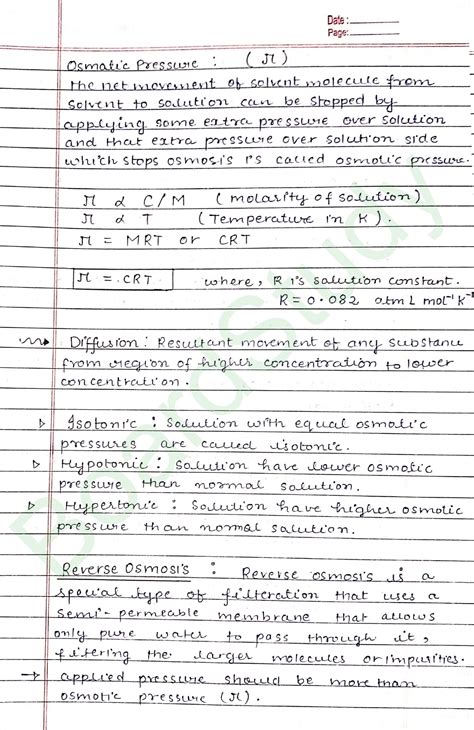 Date :
Page:
Osmatic Pressure : (π)
The net movement of solvent molecule from
solvent to solution can be stopped by
applying some extra pressure over solution
and that extra pressure over solution side
which stops osmosis is called osmotic pressure.
π α C/M (molarity of solution)
π α T (Temperature in K).
π = MRT or CRT
π = .CRT where, R is solution constant.
R = 0.082 atm L mol⁻¹ K⁻¹
Diffusion : Resultant movement of any substance
from region of higher concentration to lower
concentration.
▷ Isotonic : Solution with equal osmotic
pressures are called isotonic.
▷ Hypotonic : Solution have lower osmotic
pressure than normal solution.
▷ Hypertonic : Solution have higher osmotic
pressure than normal solution.
Reverse Osmosis : Reverse osmosis is a
special type of filteration that uses a
Semi-permeable membrane that allows
only pure water to pass through it,
filtering the larger molecules or impurities.
→ applied pressure should be more than
osmotic pressure (π).
BoardStudy